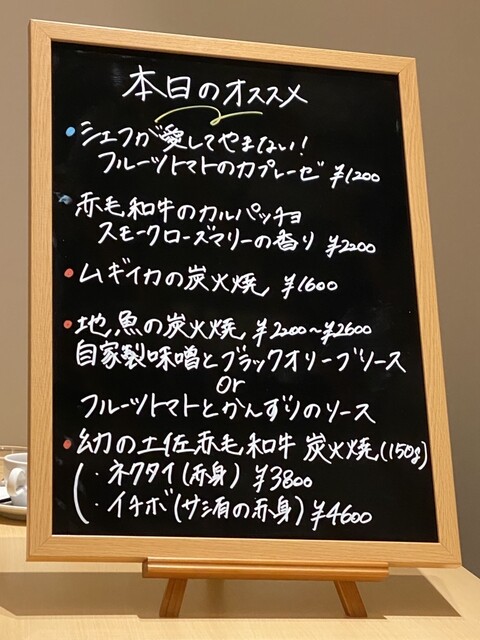 本日のオススメ
シェフが愛してやまない!
フルーツトマトのカプレーゼ ¥1200
赤毛和牛のカルパッチョ
スモークローズマリーの香り ¥2200
ムギイカの炭火焼 ¥1600
地魚の炭火焼 ¥2200~¥2600
自家製味噌とブラックオリーブソース
or
フルーツトマトとかんずりのソース
幻の土佐赤毛和牛 炭火焼(150g)
・ネクタイ(赤身) ¥3800
・イチボ(サシ有の赤身) ¥4600